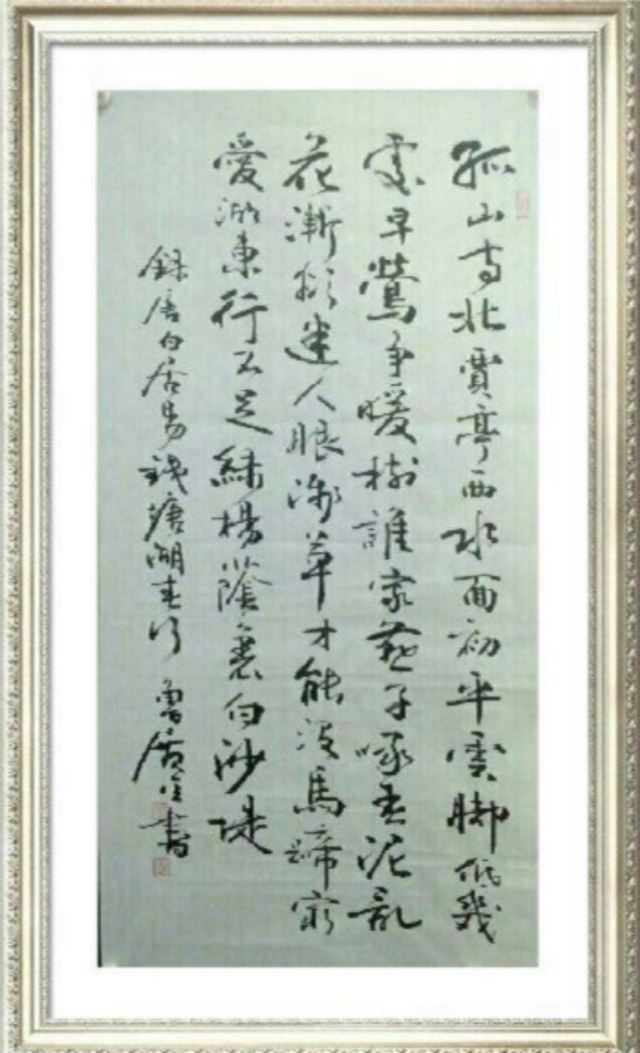 孤山寺北賈亭西水面初平雲脚低幾
處早鶯争暖樹誰家燕子啄春泥亂
花漸欲迷人眼淺草才能没馬蹄最
愛湖東行不足綠楊蔭裏白沙堤
錄唐白居易錢塘湖春行 書